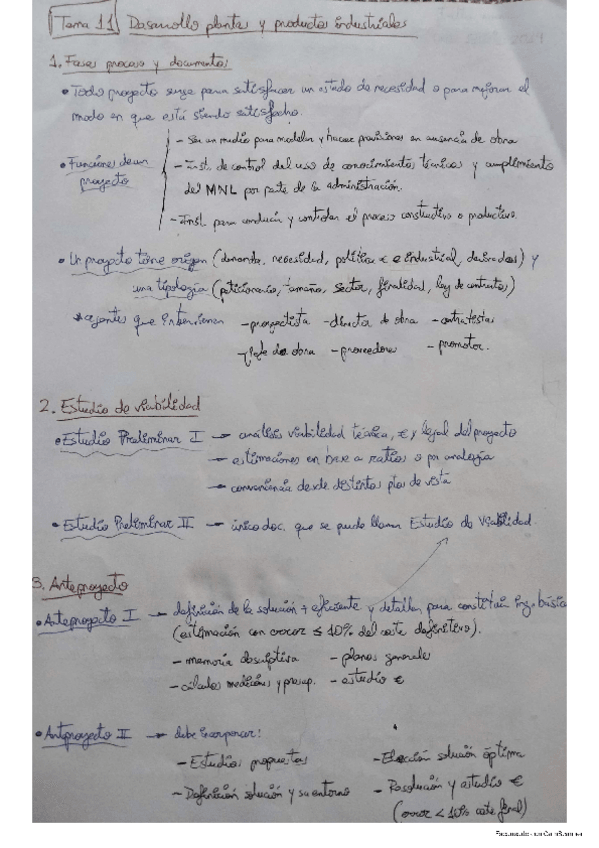 Tema 11 Desarrollo plantas y productos industriales
1. Fases proceso y documentos
• Todo proyecto surge para satisfacer un estado de necesidad o para mejorar el
modo en que está siendo satisfecho.
• Funciones de un proyecto
- Ser un medio para modelar y hacer previsiones en ausencia de obra
- Inst. de control del uso de conocimientos técnicos y cumplimiento
del MNL por parte de la administración.
- Inst. para conducir y controlar el proceso constructivo o productivo.
• Un proyecto tiene origen (demanda, necesidad, política € e industrial, derivadas) y
una tipología (peticionario, tamaño, sector, finalidad, ley de contratos)
* agentes que intervienen - proyectista - director de obra - contratistas
- jefe de obra - proveedores - promotor.
2. Estudio de viabilidad
• Estudio Preliminar I → análisis viabilidad técnica, € y legal del proyecto
→ estimaciones en base a ratios o por analogía
→ conveniencia desde distintos ptos de vista
• Estudio Preliminar II → único doc. que se puede llamar Estudio de Viabilidad.
3. Anteproyecto
• Anteproyecto I → definición de la solución + eficiente y detalles para constituir ing. básica
(estimación con error ≤ 10% del coste definitivo).
- memoria descriptiva - planos generales
- cálculos mediciones y presup. - estudio €
• Antproyecto II → debe incorporar:
- Estudios propuestas - Elección solución óptima
- Definición solución y su entorno - Resolución y estudio €
(error < 10% coste final)